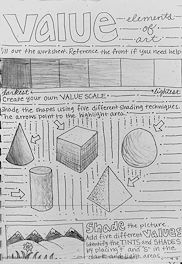 value
elements
of
art
fill out the worksheet. Reference the front if you need help
darkest
lightest
Create your own VALUE SCALE.
Shade the shapes using five different shading techniques.
The arrows point to the highlight area.
Shade the picture
Add five different values
Identify the TINTS and SHADES
by placing T and S in the